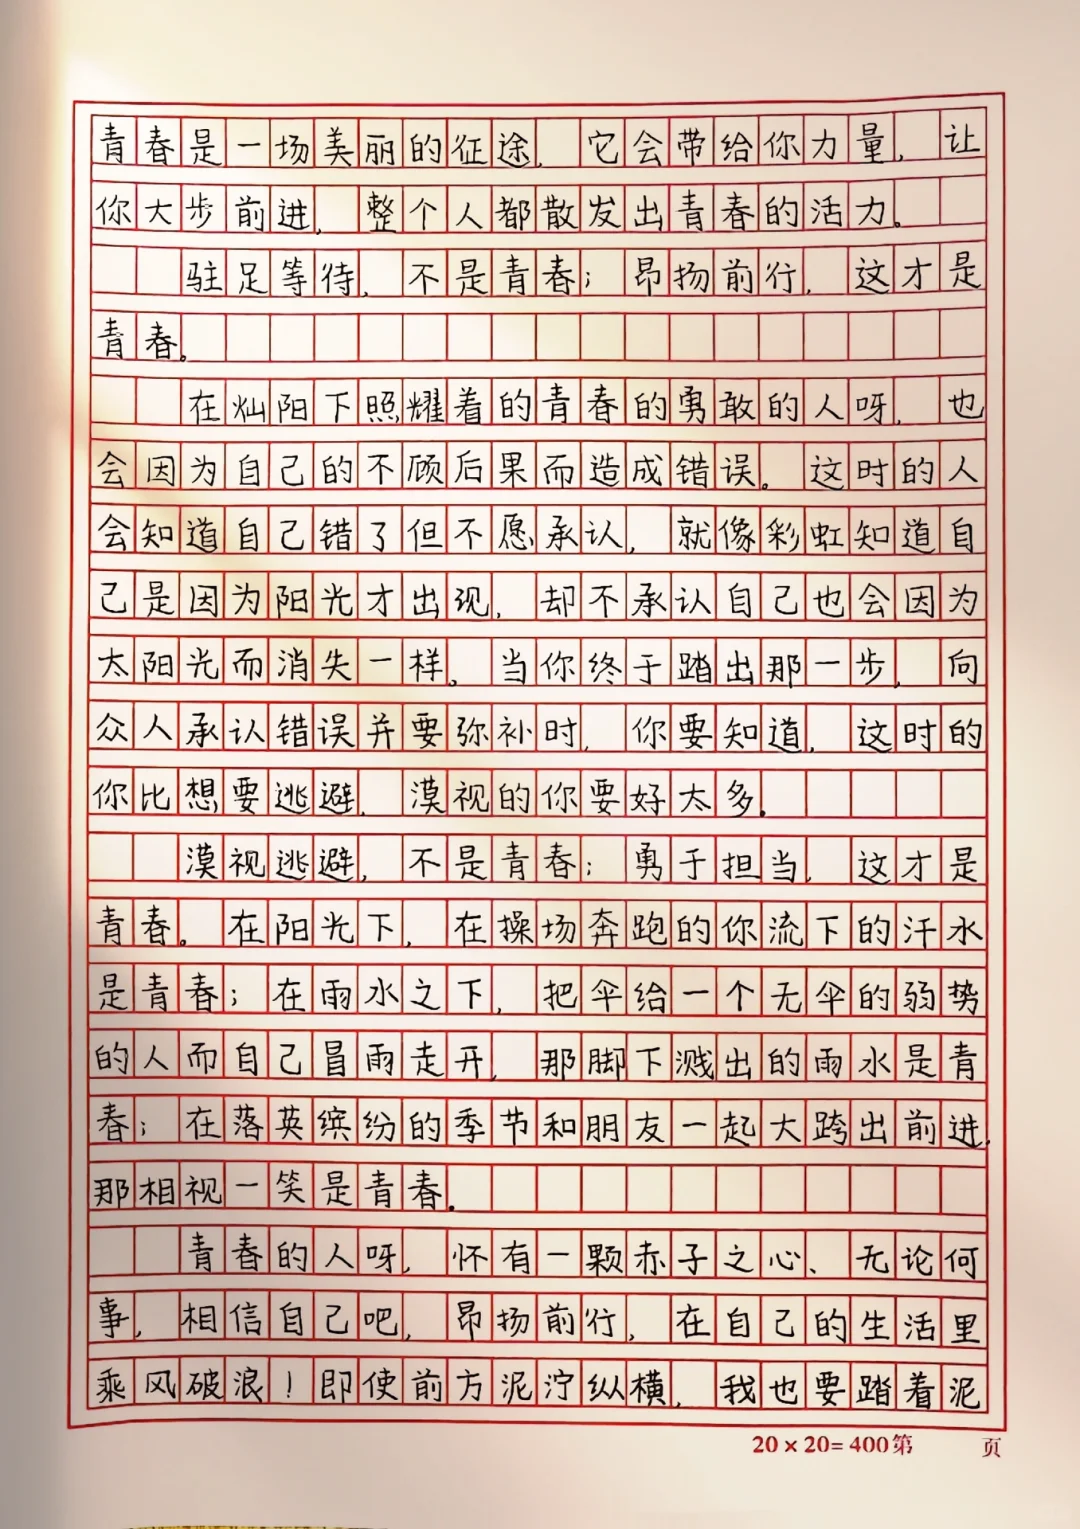 青春是一场美丽的征途,它会带给你力量,让
你大步前进,整个人都散发出青春的活力。
驻足等待,不是青春;昂扬前行,这才是
青春。
在灿阳下照耀着的青春的勇敢的人呀,也
会因为自己的不顾后果而造成错误。这时的人
会知道自己错了但不愿承认,就像彩虹知道自
己是因为阳光才出现,却不承认自己也会因为
太阳光而消失一样。当你终于踏出那一步,向
众人承认错误并要弥补时,你要知道,这时的
你比想要逃避、漠视的你要好太多.
漠视逃避,不是青春;勇于担当,这才是
青春。在阳光下,在操场奔跑的你流下的汗水
是青春;在雨水之下,把伞给一个无伞的弱势
的人而自己冒雨走开,那脚下溅出的雨水是青
春;在落英缤纷的季节和朋友一起大跨出前进,
那相视一笑是青春.
青春的人呀,怀有一颗赤子之心、无论何
事,相信自己吧,昂扬前行,在自己的生活里
乘风破浪!即使前方泥泞纵横,我也要踏着泥
20×20=400第 页